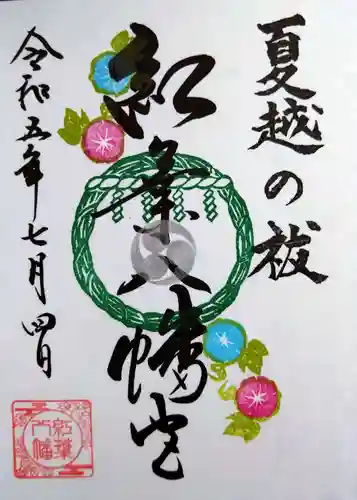 夏越の祓
紅葉八幡宮
令和五年七月四日
紅葉
八幡